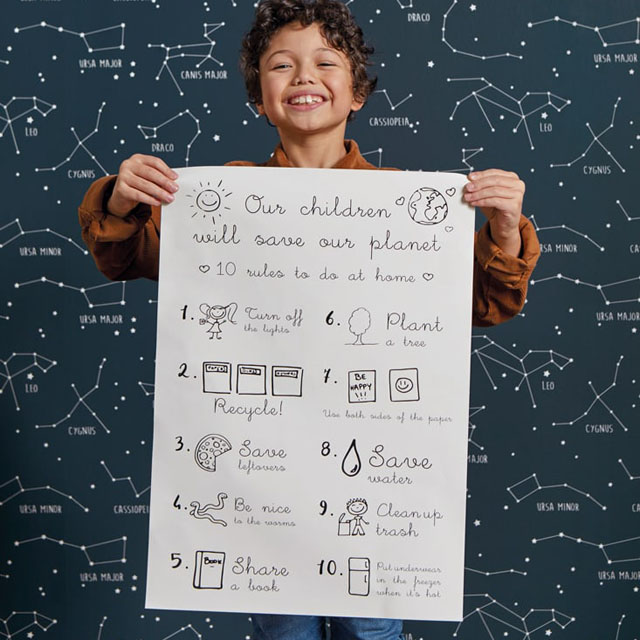 Our children
will save our planet
10 rules to do at home
1. Turn off
the lights
2. Recycle!
3. Save
leftovers
4. Be nice
to the worms
5. BOOK Share
a book
6. Plant
a tree
7. BE
HAPPY
!!!
Use both sides of the paper
8. Save
water
9. Clean up
trash
10. Put underwear
in the freezer
when it's hot
DRACO
URSA MAJOR
CANIS MAJOR
LEO
CASSIOPEIA
LEO
DRACO
CYGNUS
CYGNUS
URSA MINOR
URSA MINOR
URSA MAJOR
URSA MAJOR
LEO
LEO
CYGNUS
CYGNUS
URSA MINOR
CASSIOPEI
URSA MINOR
URSA MAJOR
URSA MAJOR